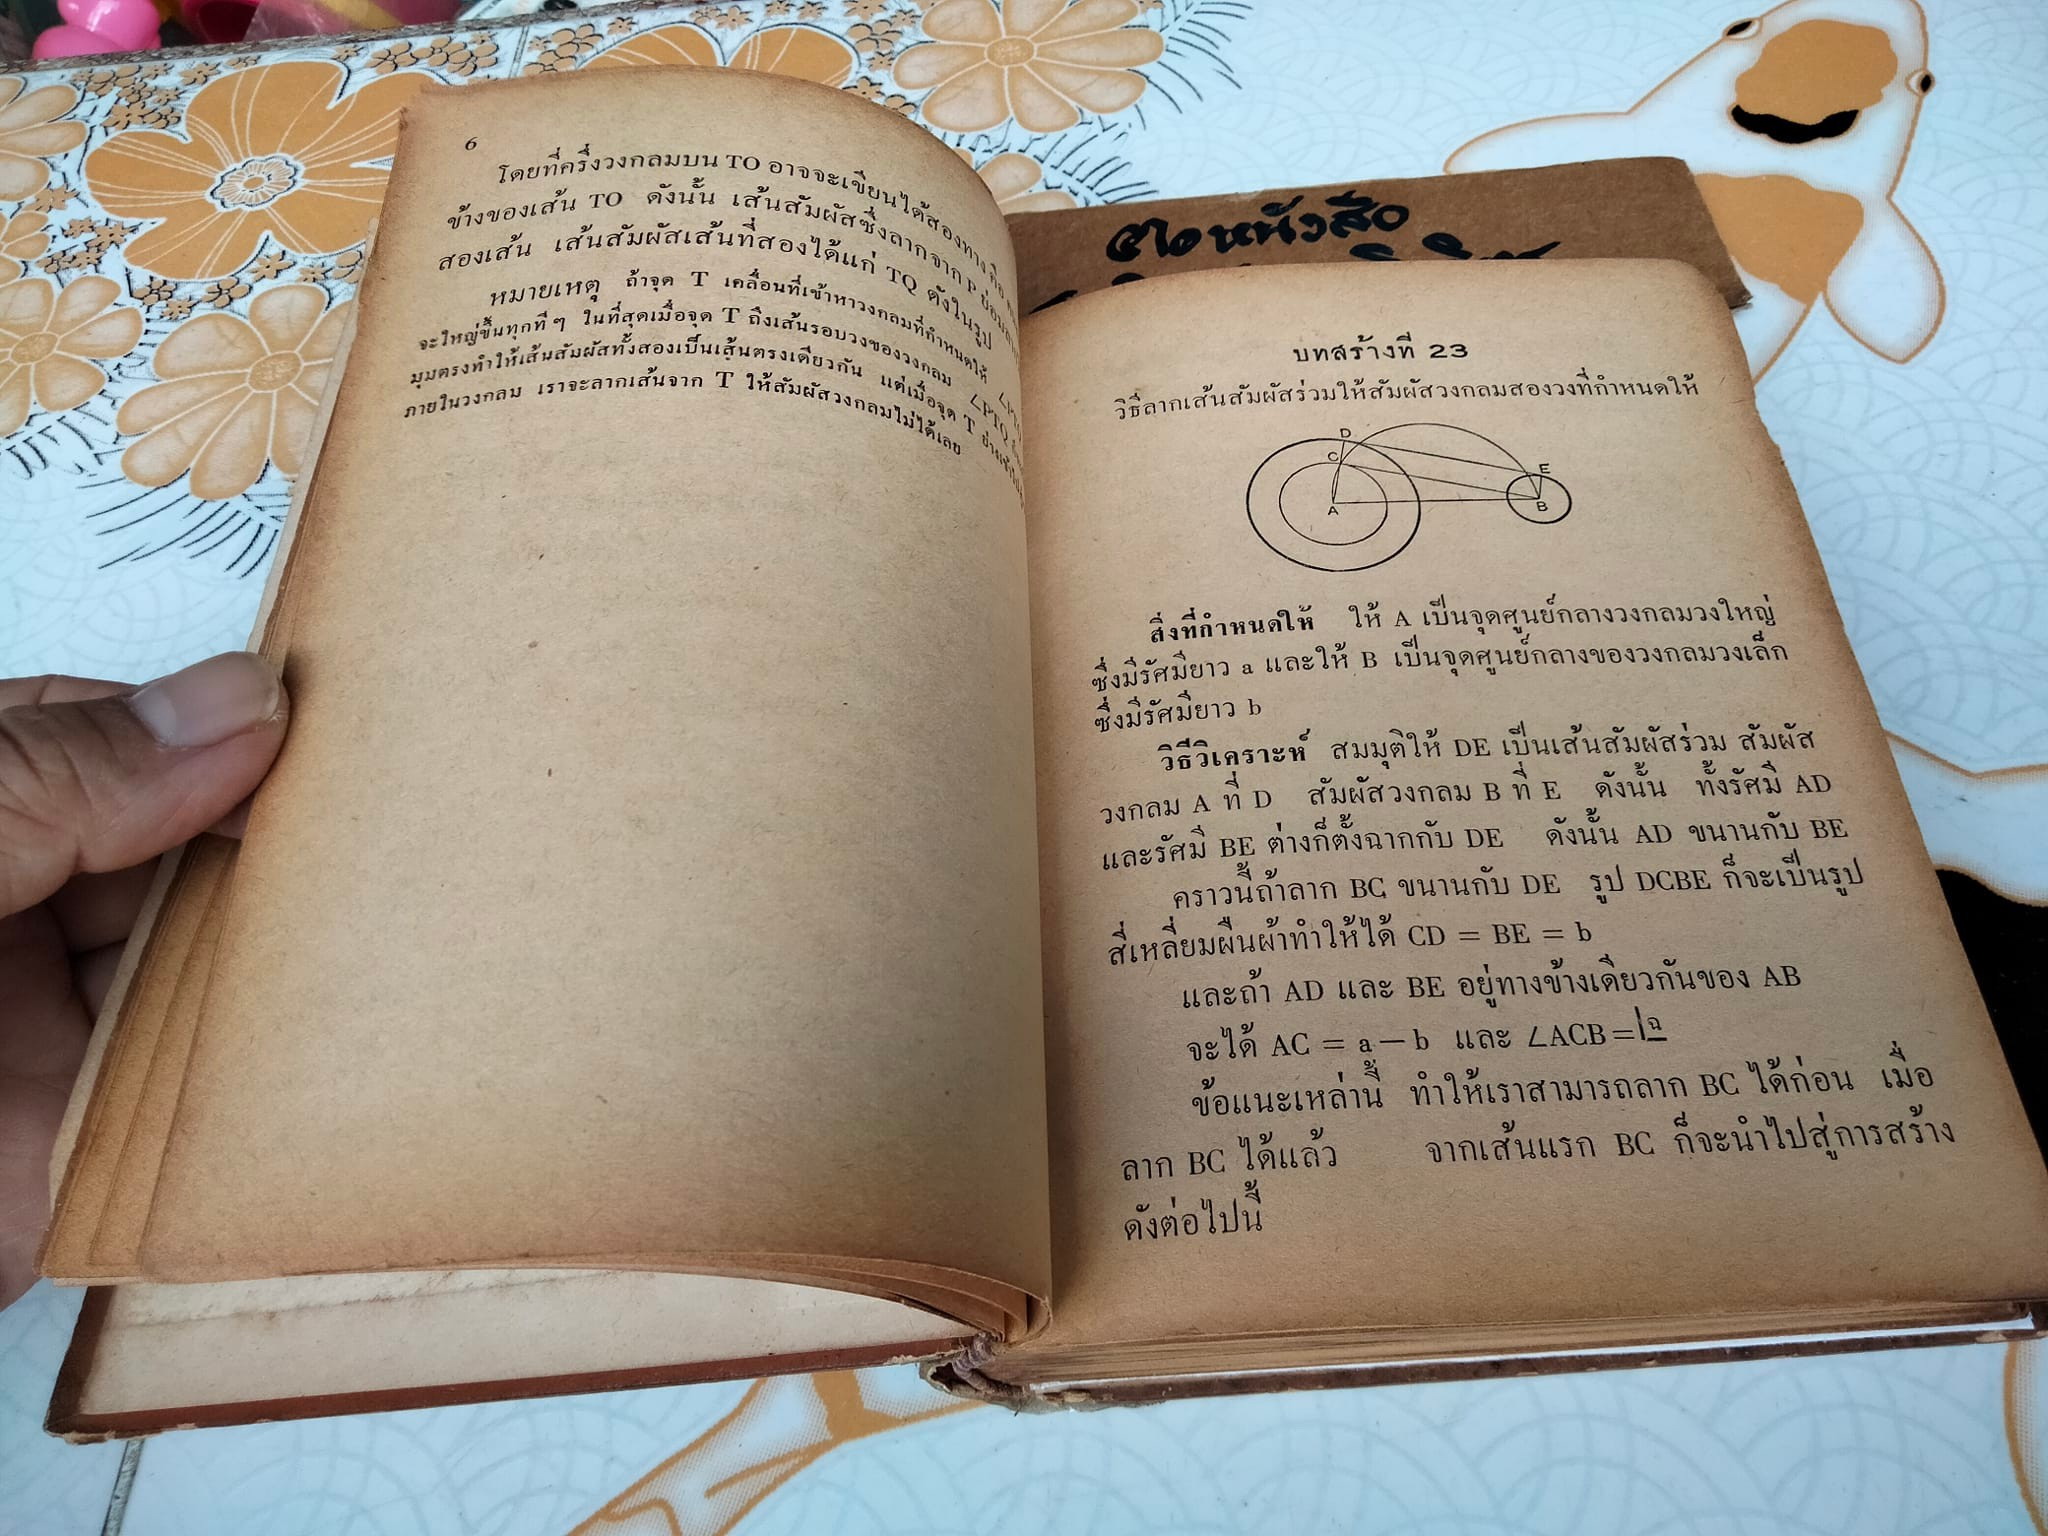 6
โดยที่ครึ่งวงกลมบน TO อาจจะเขียนได้สองทาง คือ
ข้างของเส้น TO ดังนั้น เส้นสัมผัสซึ่งลากจาก P ย่อม
สองเส้น เส้นสัมผัสเส้นที่สองได้แก่ TQ ดังในรูป
หมายเหตุ ถ้าจุด T เคลื่อนที่เข้าหาวงกลมที่กำหนดให้
จะใหญ่ขึ้นทุกทีๆ ในที่สุดเมื่อจุด T ถึงเส้นรอบวงของวงกลม ∠PTQ
มุมตรงทำให้เส้นสัมผัสทั้งสองเป็นเส้นตรงเดียวกัน แต่เมื่อจุด T
ภายในวงกลม เราจะลากเส้นจาก T ให้สัมผัสวงกลมไม่ได้เลย
หนังสือ
บทสร้างที่ 23
วิธีลากเส้นสัมผัสร่วมให้สัมผัสวงกลมสองวงที่กำหนดให้
D
C
E
A
B
สิ่งที่กำหนดให้ ให้ A เป็นจุดศูนย์กลางวงกลมวงใหญ่
ซึ่งมีรัศมียาว a และให้ B เป็นจุดศูนย์กลางของวงกลมวงเล็ก
ซึ่งมีรัศมียาว b
วิธีวิเคราะห์ สมมุติให้ DE เป็นเส้นสัมผัสร่วม สัมผัส
วงกลม A ที่ D สัมผัสวงกลม B ที่ E ดังนั้น ทั้งรัศมี AD
และรัศมี BE ต่างก็ตั้งฉากกับ DE ดังนั้น AD ขนานกับ BE
คราวนี้ถ้าลาก BC ขนานกับ DE รูป DCBE ก็จะเป็นรูป
สี่เหลี่ยมผืนผ้าทำให้ได้ CD = BE = b
และถ้า AD และ BE อยู่ทางข้างเดียวกันของ AB
จะได้ AC = a — b และ ∠ACB = ฉ
ข้อแนะเหล่านี้ ทำให้เราสามารถลาก BC ได้ก่อน เมื่อ
ลาก BC ได้แล้ว จากเส้นแรก BC ก็จะนำไปสู่การสร้าง
ดังต่อไปนี้